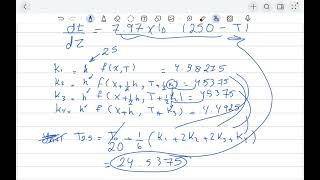 dt/dz = 7.97x10 (250 - T)
25
K1 = h f(x,T) = 4.98275
K2 = h f(x+½h, T+½K1) = 45375
K3 = h f(x+½h, T+½K2) = 45375
K4 = h f(x+h, T+K3) = 4.4925
T2.5 = T0 + 1/6 (K1 + 2K2 + 2K3 + K4)
20
= 24.5375